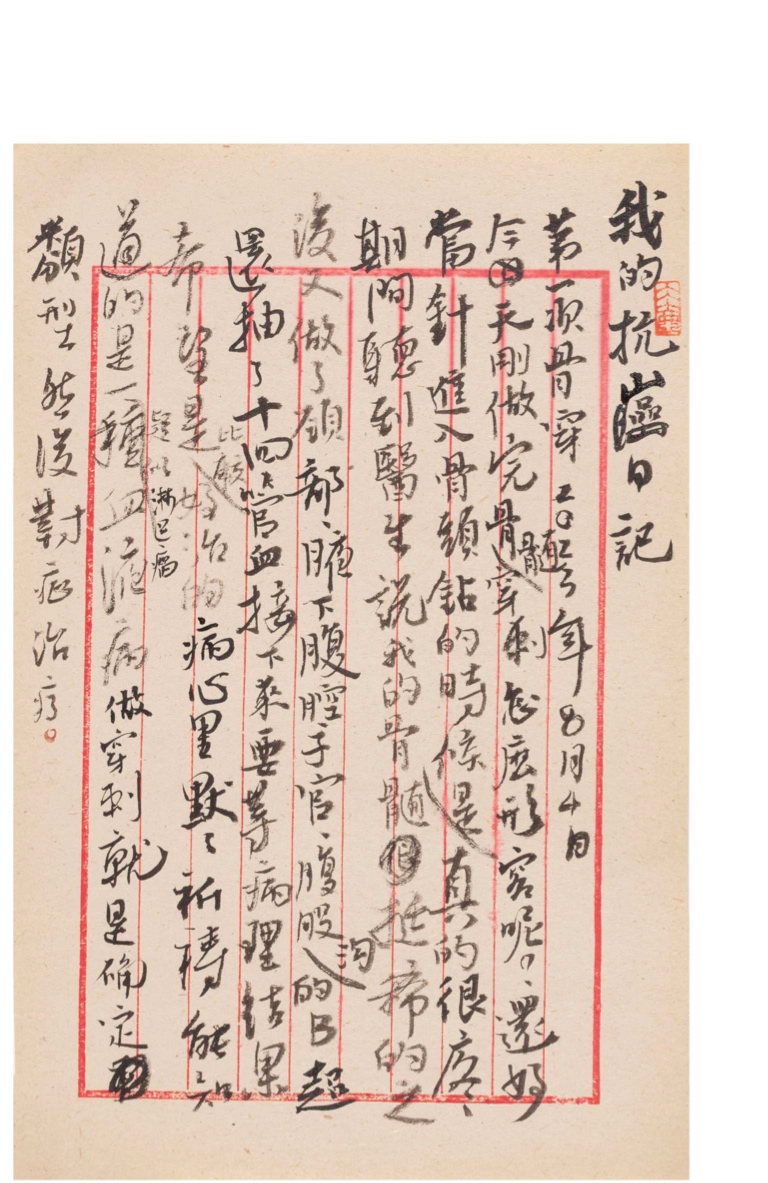 我的抗癌日記
第一次骨穿 2023年8月4日
今天剛做完骨髓穿刺怎麽形容呢。還好
當針進入骨頭鈷的時候是真的很疼、
期間聽到醫生說我的骨髓挺稀的之
後又做了頭部、腋下腹腔子宫、腹股沟的B超
還抽了十四管血接下來要等病理结果
希望是比較好治的病心里默々祈禱、能知
道的是一種疑似淋巴瘤血液病做穿刺就是确定
類型然後對症治疗。